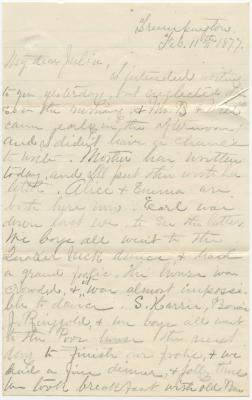 Trumpington,
Feb. 11th 1877.
My dear Julia,
I intended writing
to you yesterday, but neglected it
in the morning, & Mr. B &
came early in the afternoon
and I didn't have a chance
to write. Mother has written
today, and I'll put this with her
letter. Alice & Emma are
both here now. Earl was
down last eve. to see the latter.
We boys all went to the
Quaker Neck dance & had
a grand frolic, the house was
crowded, & was almost impossi-
ble to dance. S. Harris,
J. Ringgold, & we boys all went
to the house the next
day to finish our frolic, & we
had a fine dinner, & jolly time
we took breakfast with old